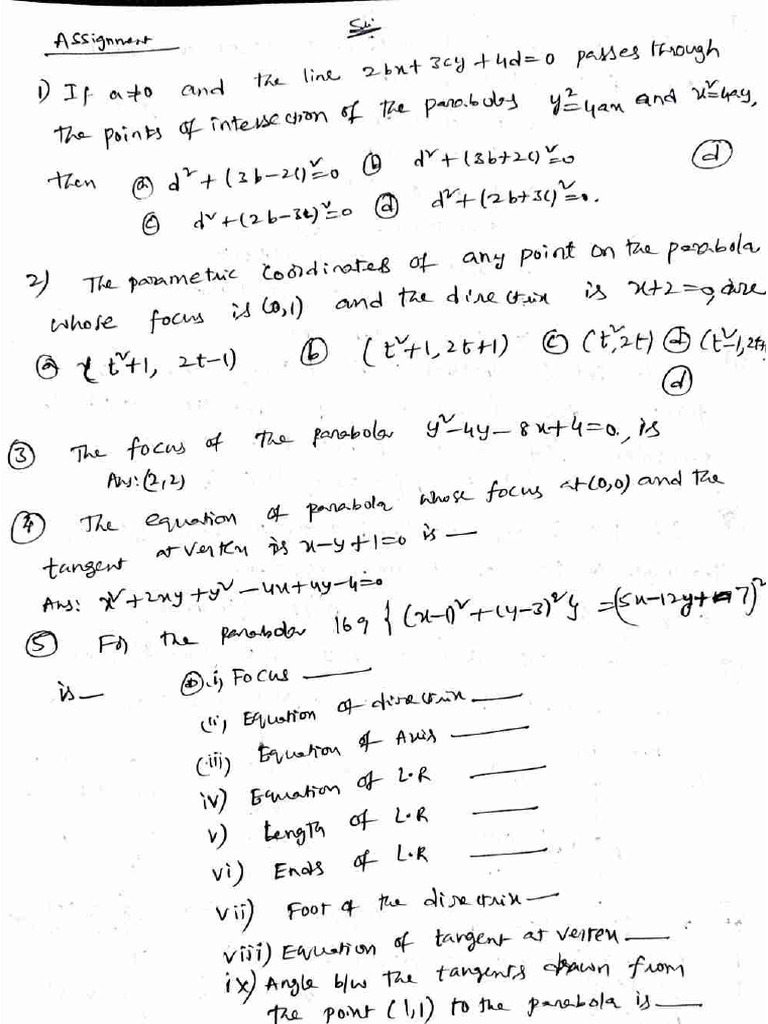 Assignment
1) If a≠0 and the line 2bx+3cy+4d=0 passes through
the points of intersection of the parabolas y²=4ax and x²=4ay,
then ⓐ d²+(3b-2c)²=0 ⓑ d²+(3b+2c)²=0 ⓓ
ⓒ d²+(2b-3c)²=0 ⓓ d²+(2b+3c)²=0.
2) The parametric coordinates of any point on the parabola
whose focus is (0,1) and the directrix is x+2=0, are
ⓐ (t²+1, 2t-1) ⓑ (t²+1, 2t+1) ⓒ (t²,2t) ⓓ (t²-1,2t+
ⓓ
③ The focus of the parabola y²-4y-8x+4=0, is
Ans: (2,2)
④ The equation of parabola whose focus at (0,0) and the
tangent at vertex is x-y+1=0 is —
Ans: x²+2xy+y²-4x+4y-4=0
⑤ For the parabola 169 {(x-1)²+(y-3)²} = (5x-12y+17)²
is — i) Focus —
(ii) Equation of directrix —
(iii) Equation of Axis —
iv) Equation of L.R —
v) Length of L.R —
vi) Ends of L.R —
vii) Foot of the directrix —
viii) Equation of tangent at vertex —
ix) Angle b/w the tangents drawn from
the point (1,1) to the parabola is —